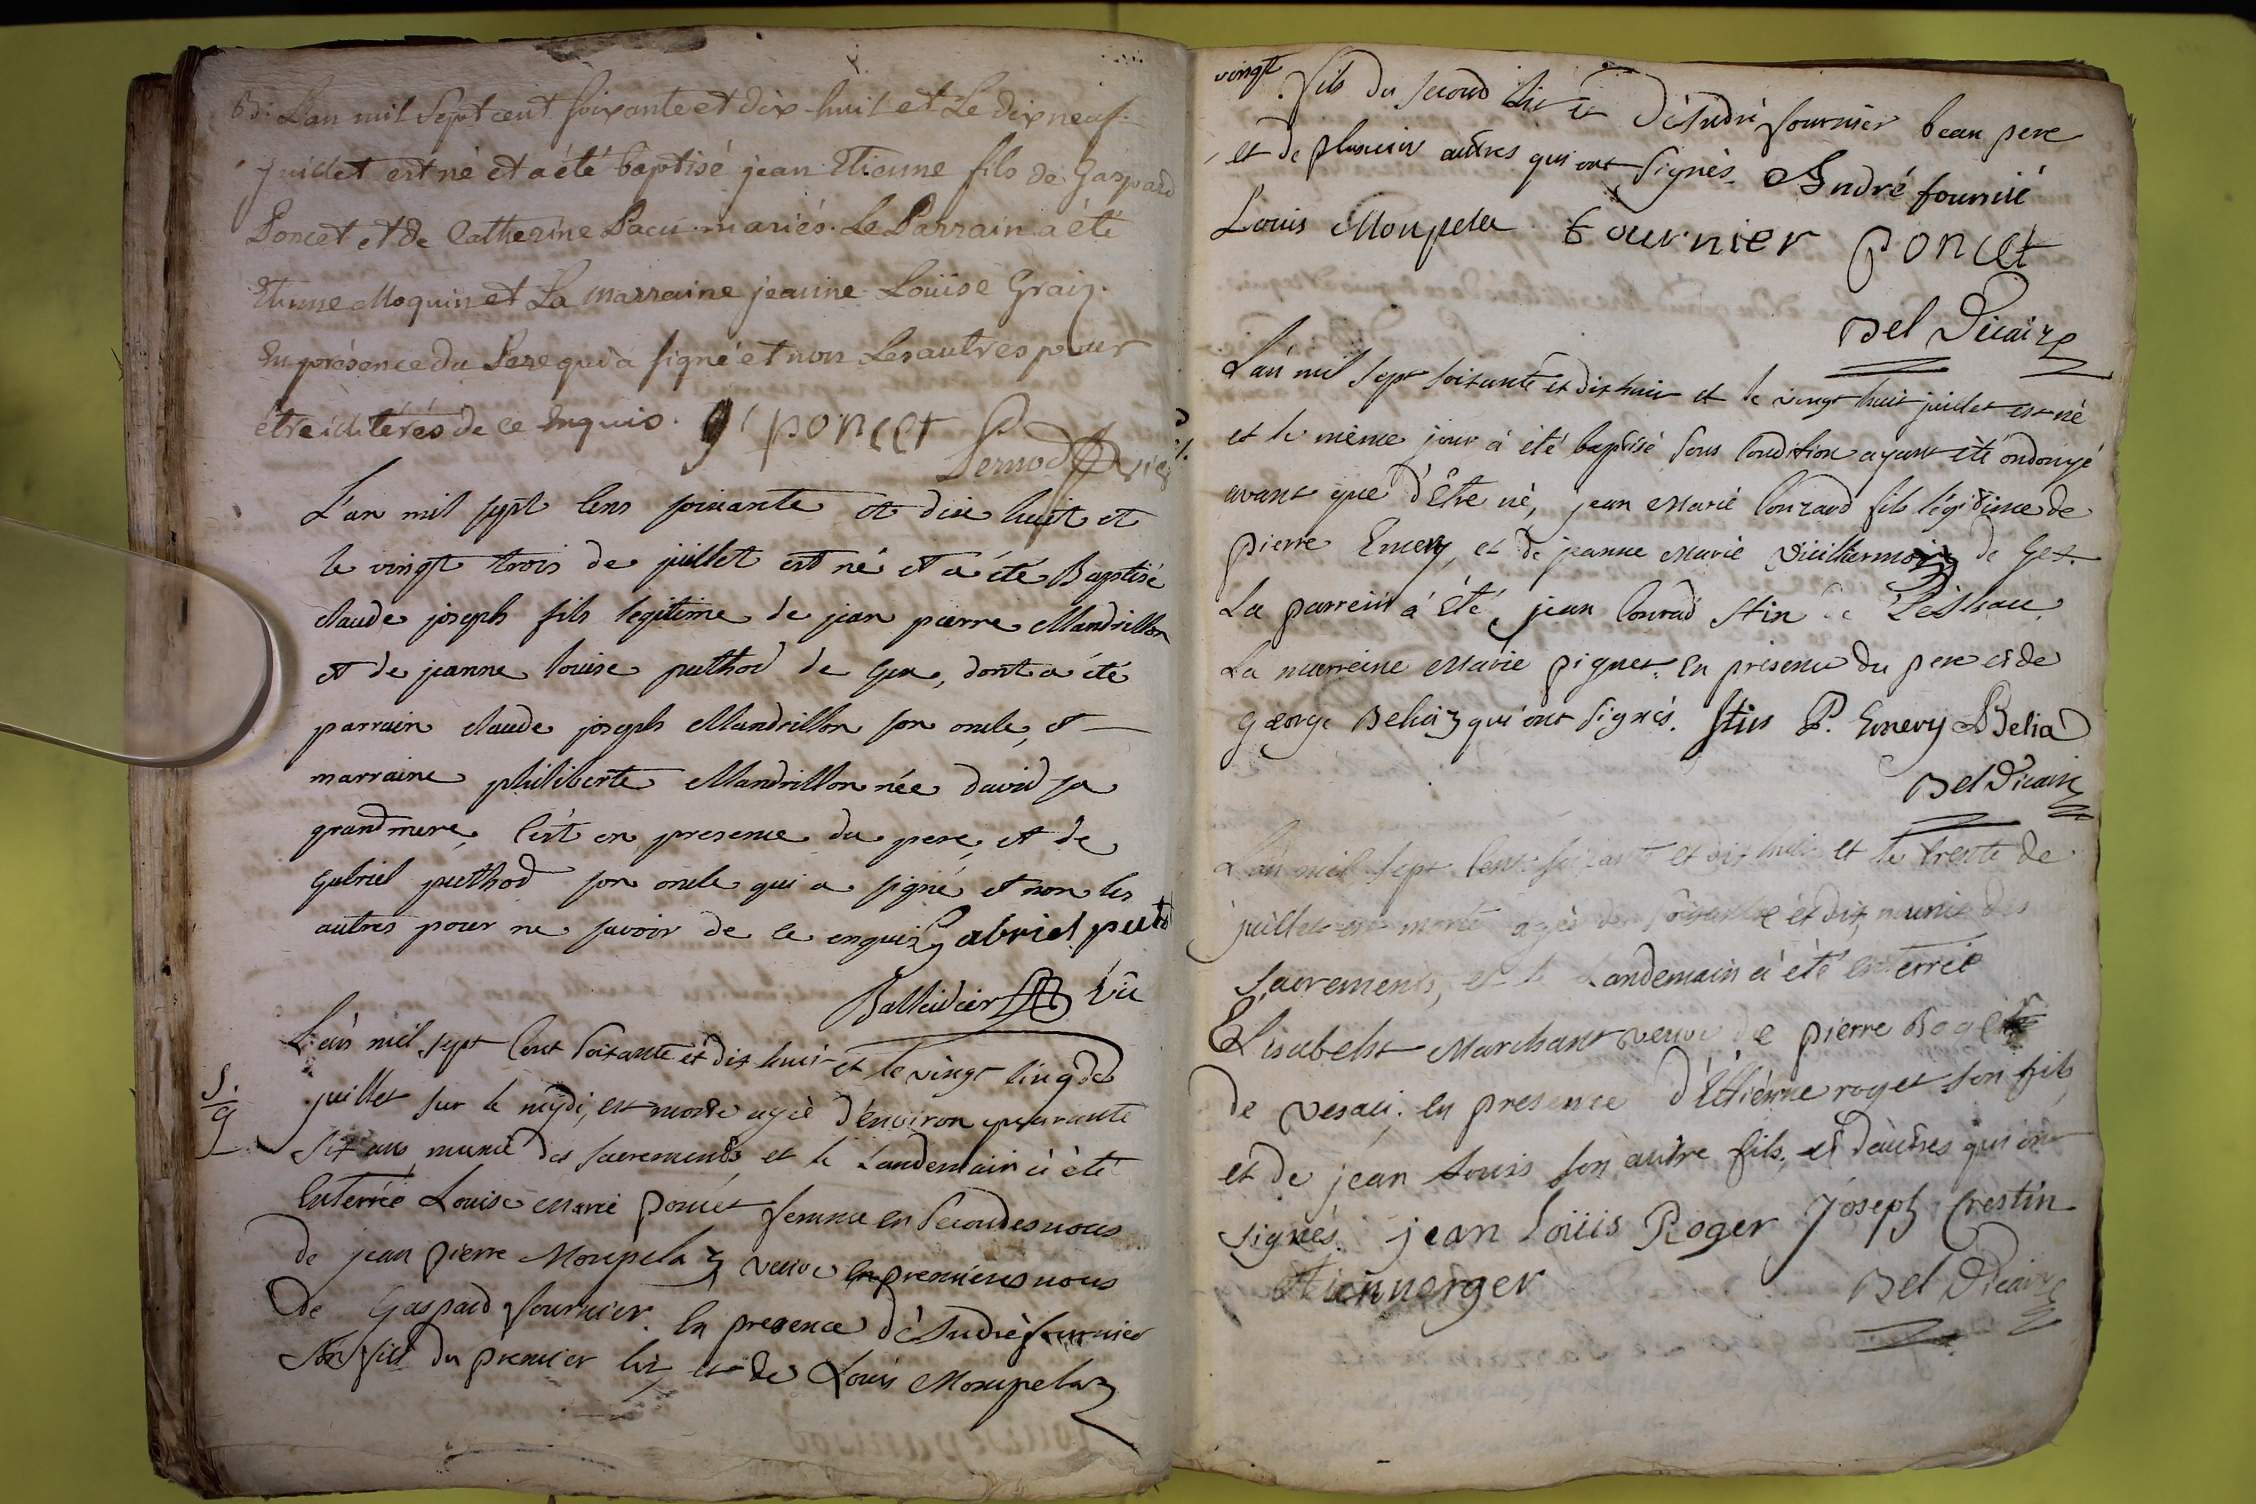 L'an mil Sept cent soixante et dix-huit et Le dix neuf
juillet est né et a été baptisé jean Etienne fils de Gaspard
Poncet et de Catherine Pacu mariés. Le Parrain a été
Etienne Moquin et La marraine jeanne Loüise Graiz.
En présence du Pere qui a signé et non Les autres pour
être illitérés de ce Enquis. g poncet
L'an mil sept cens soixante et dix huit et
le vingt trois de juillet est né et a été Baptisé
claude joseph fils legitime de jean pierre Mandrillon
et de jeanne louise puthod de Gex, dont a été
parrain claude joseph Mandrillon son oncle, et
marraine philiberte Mandrillon née david sa
grandmere, c'est en presence du pere, et de
gabriel puthod son oncle qui a signé et non les
autres pour ne savoir de ce enquis Gabriel putod
Ballidier
L'an mil sept cent soixante et dix huit et le vingt cinq de
juillet sur le midi, est morte agée d'environ quarante
six ans munie des sacrements, et le Landemain a été
Enterrée Louise Marie poncet femme en secondes nous
de jean pierre Moupelaz veuve en premieres nous
de Gaspard fournier. En presence d'André fournier
son fils du premier lit, et de Louis Moupelaz
vingt fils du second lit et d'André fournier beau pere
et de plusieurs autres qui ont signés. André fournié
Louis Moupela Fournier poncet
Bel Vicaire
L'an mil sept soixante et dix huit et le vingt huit juillet est né
et le même jour a été baptisé sous condition ayant été ondoyé
avant que d'être né, jean Marie Conrard fils légitime de
pierre Emery, et de jeanne Marie Vuillermoz de Gex.
La parrein a été jean Conrad Stin
La marreine Marie pignet. En présence du pere et de
george Beliaz qui ont signés. Stin P. Emery Belia
Bel Vicaire
L'an mil sept cent soixante et dix huit et le trente de
juillet est morte agée de soixante et dix, munie des
sacrements, et le Landemain a été enterrée
Elisabeht Marchant veuve de pierre Roget
de vesaci. en presence d'Etiénne roget son fils,
et de jean Louis son autre fils, et d'autres qui ont
signés. jean loüis Roger joseph Crestin
Etiennerger Bel Vicaire